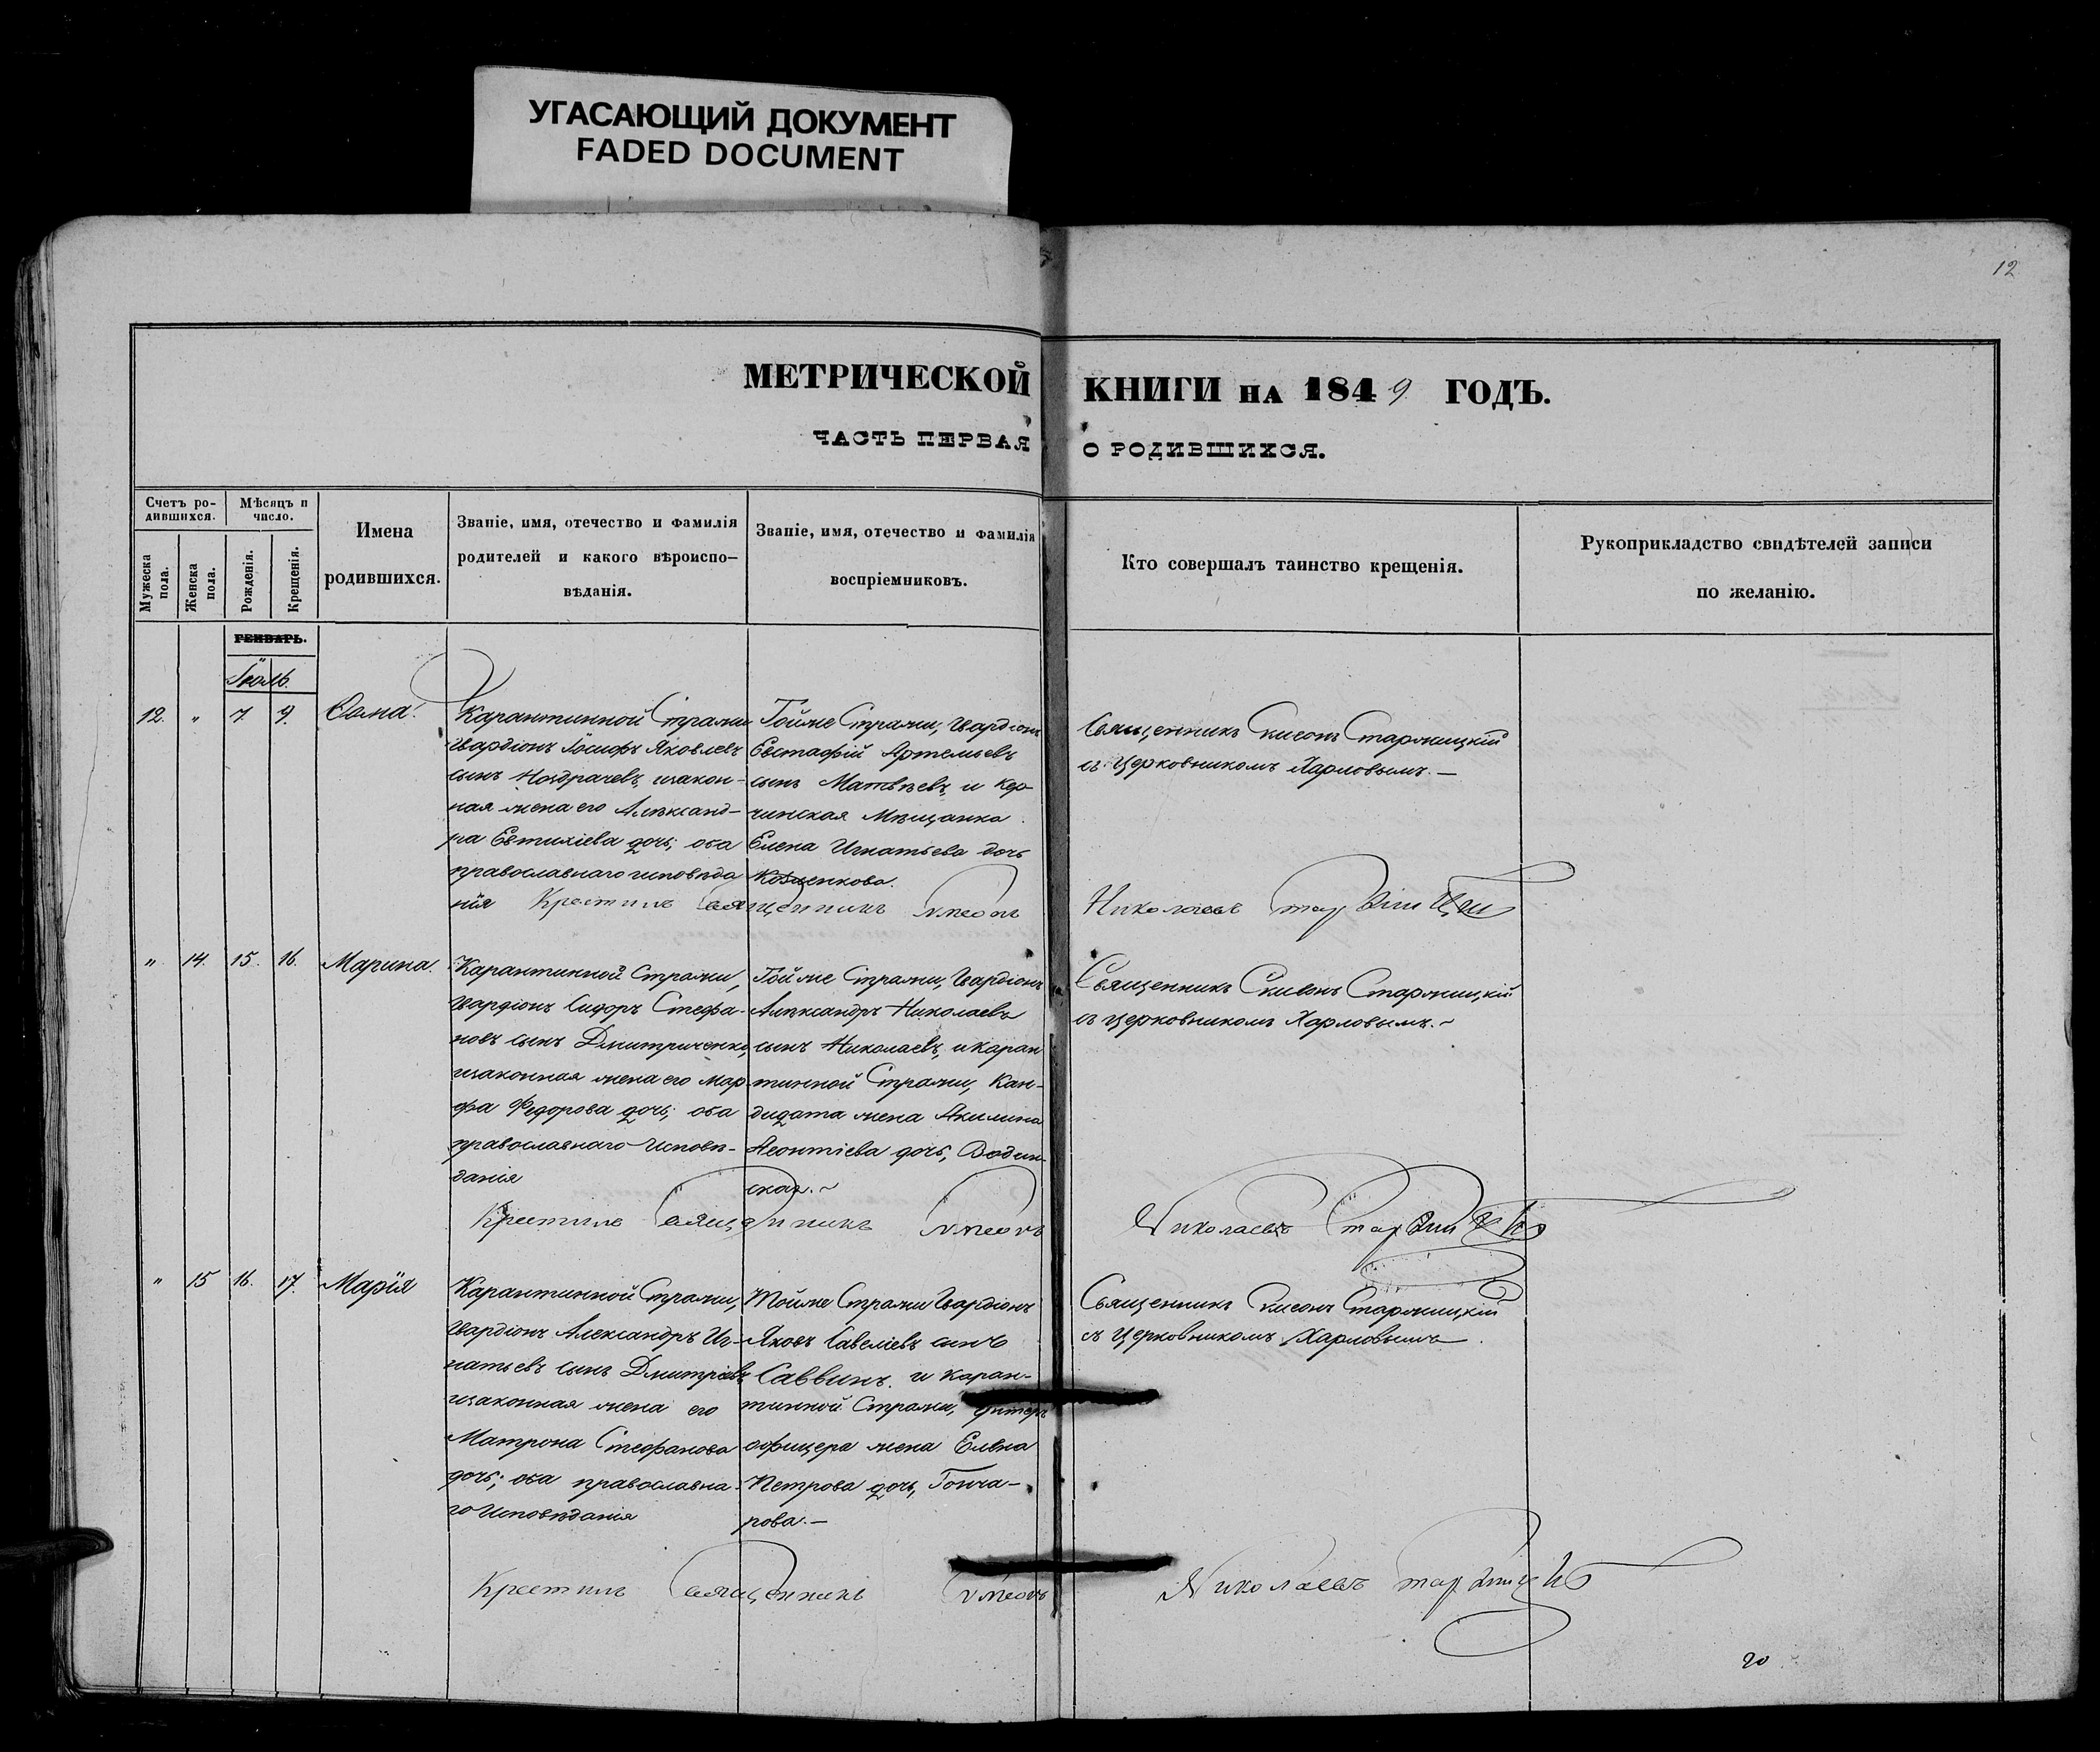 УГАСАЮЩИЙ ДОКУМЕНТ
FADED DOCUMENT
12
МЕТРИЧЕСКОЙ КНИГИ НА 1849 ГОДЪ.
ЧАСТЬ ПЕРВАЯ О РОДИВШИХСЯ.
Счетъ ро-
дившихся.
Мужеска пола.
Женска пола.
Мѣсяцъ и
число.
Рожденія.
Крещенія.
Имена
родившихся.
Званіе, имя, отечество и фамилія
родителей и какого вѣроиспо-
вѣданія.
Званіе, имя, отечество и фамилія
воспріемниковъ.
Кто совершалъ таинство крещенія.
Рукоприкладство свидѣтелей записи
по желанію.
ГЕНВАРЬ.
Іюль.
12. " 7. 9.
Карантинной Стражи
Гвардіонъ Іосифъ Яковлевъ
сынъ Ноздрачевъ, изакон-
ная жена его Александ-
ра Евтихіева дочь; оба
православнаго исповѣда
нія
Тойже Стражи, Гвардіонъ
Евстафій Артемьевъ
сынъ Матвѣевъ, и Кер-
чинская Мѣщанка
Елена Игнатьева дочь
Священникъ Старжицкій
съ Церковникомъ Харловымъ.—
Крестилъ Священникъ Симеонъ Николаевъ Старжицкій
" 14. 15. 16. Марина.
Карантинной Стражи,
Гвардіонъ Сидоръ Стефа-
новъ сынъ Дмитриченко,
изаконная жена его Мар
фа Федорова дочь; оба
православнаго Исповѣ-
данія
Тойже Стражи, Гвардіонъ
Александръ Николаевъ
сынъ Николаевъ, и Каран
тинной Стражи, Кан-
дидата жена Акилина
Леонтіева дочь, Водин-
ская.~
Священникъ Старжицкій
съ церковникомъ Харловымъ.~
Крестилъ Священникъ Симеонъ Николаевъ Старжицкій
" 15 16. 17. Марія
Карантинной Стражи,
Гвардіонъ Александръ Иг-
натьевъ сынъ Дмитріевъ
изаконная жена его
Матрона Стефанова
дочь; оба православна-
го Исповѣданія
Тойже Стражи Гвардіонъ
Яковъ Савеліевъ сынъ
Саввинъ. и Каран-
тинной Стражи, Унтеръ
офицера жена Елена
Петрова дочь, Гонча-
рова.—
Священникъ Старжицкій
съ Церковникомъ Харловымъ.
Крестилъ Священникъ Симеонъ Николаевъ Старжицкій
20